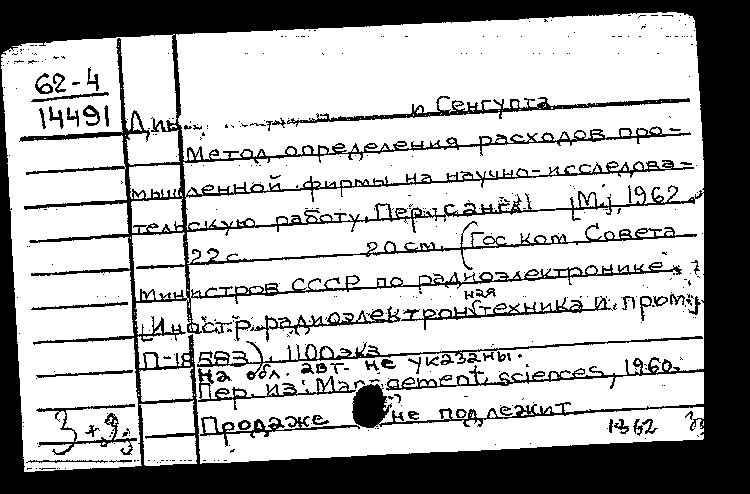 62-4
14491
и Сенгупта
Метод определения расходов про-
мышленной фирмы на научно-исследова-
тельскую работу. Пер. с англ. [М.], 1962.
22 с. 20 см. (Гос. ком. Совета
Министров СССР по радиоэлектронике.
ная
[Иностр. радиоэлектрон техника и пром.]
П-18583). 1100 экз.
на обл. авт. не указаны.
Пер. из: Management sciences, 1960.
Продаже не подлежит
1962